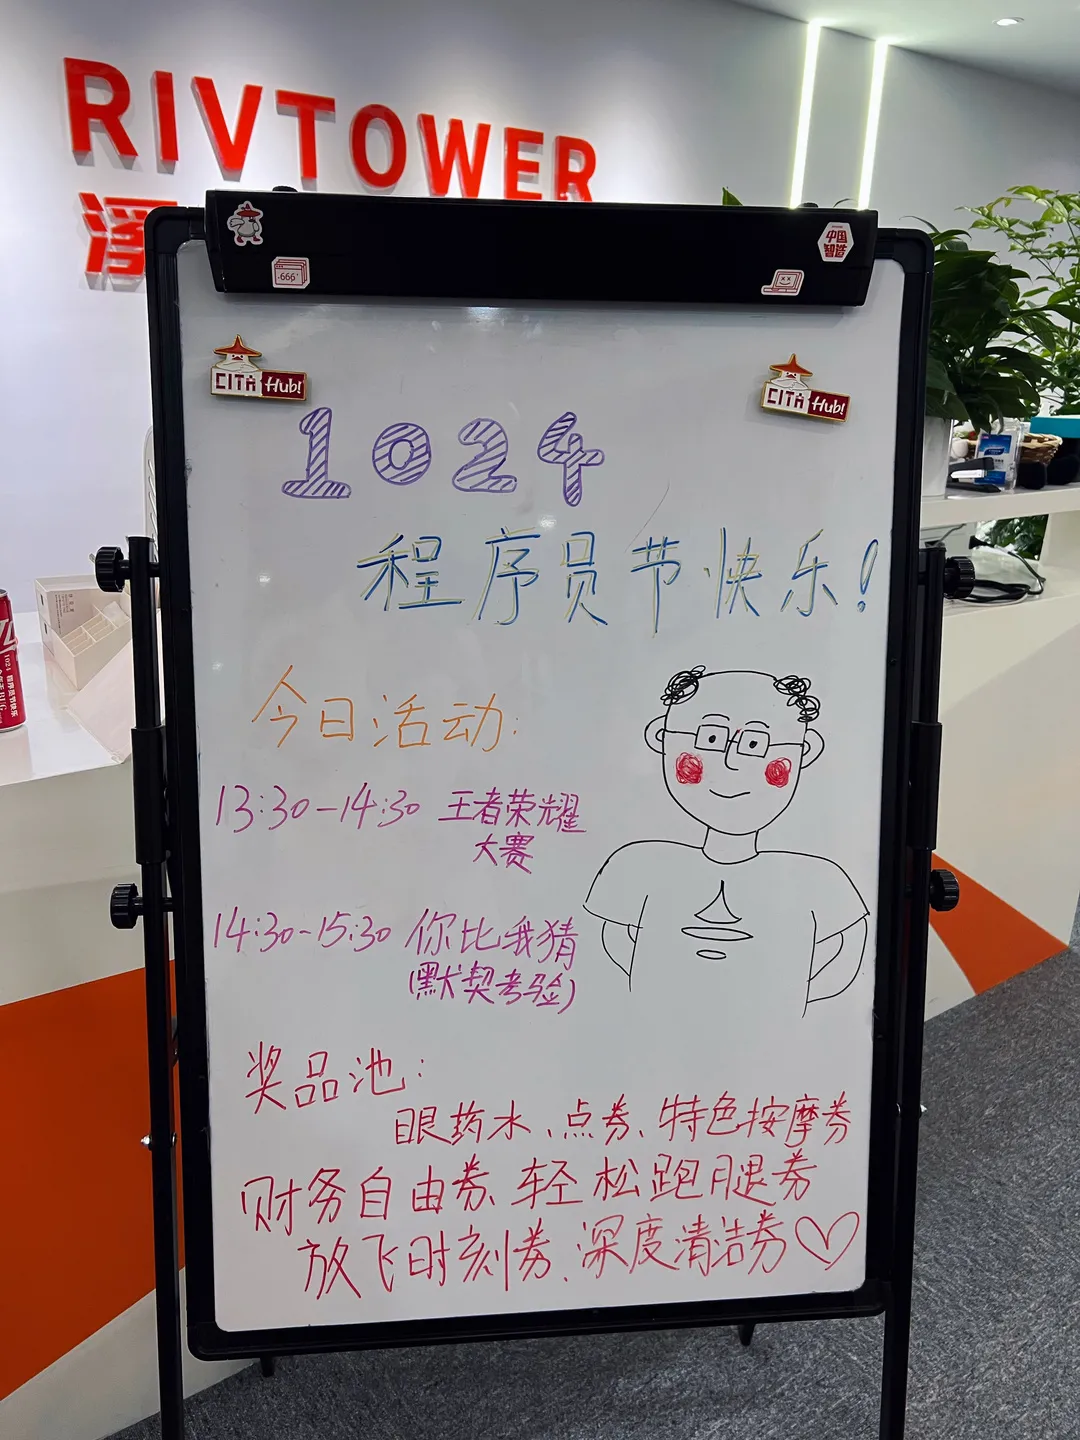 RIVTOWER
溪
中国
智造
666
CITA Hub!
CITA Hub!
1024
程序员节快乐！
今日活动：
13:30-14:30 王者荣耀
大赛
14:30-15:30 你比我猜
(默契考验)
奖品池：
眼药水、点券、特色按摩券
财务自由券、轻松跑腿券
放飞时刻券、深度清洁券♡
1024 程序员节快乐